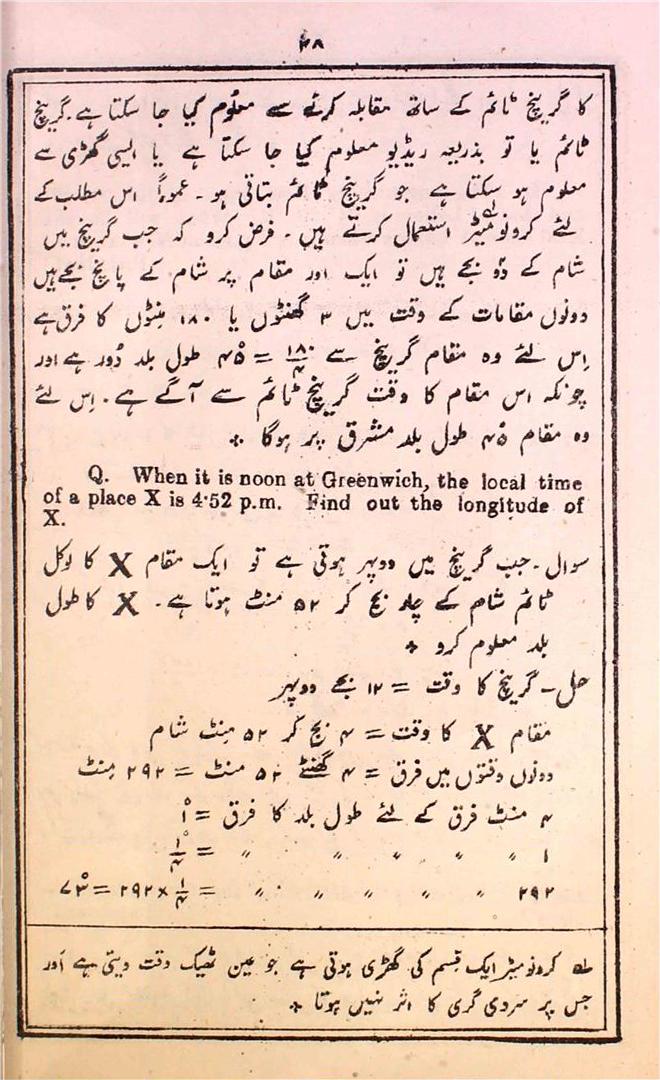 ۳۸
کا گرینچ ٹائم کے ساتھ مقابلہ کرنے سے معلوم کیا جا سکتا ہے۔ گرینچ
ٹائم یا تو بذریعہ ریڈیو معلوم کیا جا سکتا ہے یا ایسی گھڑی سے
معلوم ہو سکتا ہے جو گرینچ ٹائم بتاتی ہو۔ عموماً اس مطلب کے
لئے کرونومیٹر استعمال کرتے ہیں۔ فرض کرو کہ جب گرینچ میں
شام کے دو بجے ہیں تو ایک اور مقام پر شام کے پانچ بجے ہیں
دونوں مقامات کے وقت میں ۳ گھنٹوں یا ۱۸۰ منٹوں کا فرق ہے
اِس لئے وہ مقام گرینچ سے ۱۸۰/۴ = ۴۵° طول بلد دُور ہے اور
چونکہ اس مقام کا وقت گرینچ ٹائم سے آگے ہے۔ اِس لئے
وہ مقام ۴۵° طول بلد مشرق پر ہوگا *
Q. When it is noon at Greenwich, the local time
of a place X is 4·52 p.m. Find out the longitude of
X.
سوال۔ جب گرینچ میں دوپہر ہوتی ہے تو ایک مقام X کا لوکل
ٹائم شام کے چار بج کر ۵۲ منٹ ہوتا ہے۔ X کا طول
بلد معلوم کرو *
حل۔ گرینچ کا وقت = ۱۲ بجے دوپہر
مقام X کا وقت = ۴ بج کر ۵۲ مِنٹ شام
دونوں وقتوں میں فرق = ۴ گھنٹے ۵۲ منٹ = ۲۹۲ مِنٹ
۴ منٹ فرق کے لئے طول بلد کا فرق = ۱°
۱ " " " " " " = ۱/۴°
۲۹۲ " " " " " = ۱/۴ × ۲۹۲ = ۷۳°
لہ کرونومیٹر ایک قسم کی گھڑی ہوتی ہے جو عین ٹھیک وقت دیتی ہے اَور
جس پر سردی گرمی کا اثر نہیں ہوتا *